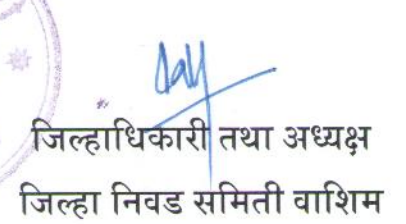 जिल्हाधिकारी तथा अध्यक्ष
जिल्हा निवड समिती वाशिम